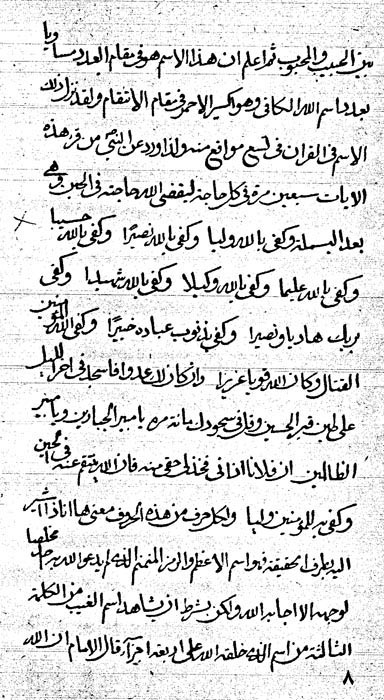 بين الحبيب والمحبوب ثم اعلم ان هذا الاسم هو فى مقام العدد مساويا
بعدد اسم الله الكافى وهو اكسير الاحمر فى مقام الانتقام ولقد نزل ذلك
الاسم فى القران فى تسع مواقع منه ولذا ورد عن النبى من قرء هذه
الايات سبعين مرة فى كل حاجة ليقضى الله حاجته فى الحين وهى
بعد البسملة وكفى بالله وليا وكفى بالله نصيرا وكفى بالله حسيبا
وكفى بالله عليما وكفى بالله وكيلا وكفى بالله شهيدا وكفى
بربك هاديا ونصيرا وكفى بذنوب عباده خبيرا وكفى الله المؤمنين
القتال وكان الله قويا عزيزا وان كان لك عدوا فاسجد فى اخر الليل
على طين قبر الحسين وقل فى سجودك مائة مرة يا مبير الجبارين ويا مبير
الظالمين ان فلانا اذانى فخذ لى حقى منه فان الله ينتقم عنه فى الحين
وكفى به للمؤمنين وليا ولكل حرف من هذه الحروف معنى ها انا ذا اشير
اليه بطرف الحقيقة فهو اسم الاعظم والرمز المنمنم الذى ما يدعو الله به رجل مخلصا
لوجهه الا اجابه الله ولكن بشرط ان يشاهد اسم الغيب من الكلمة
الثالثة من اسم الذى خلقه الله على اربعة اجزآء قال الامام ان الله
٨